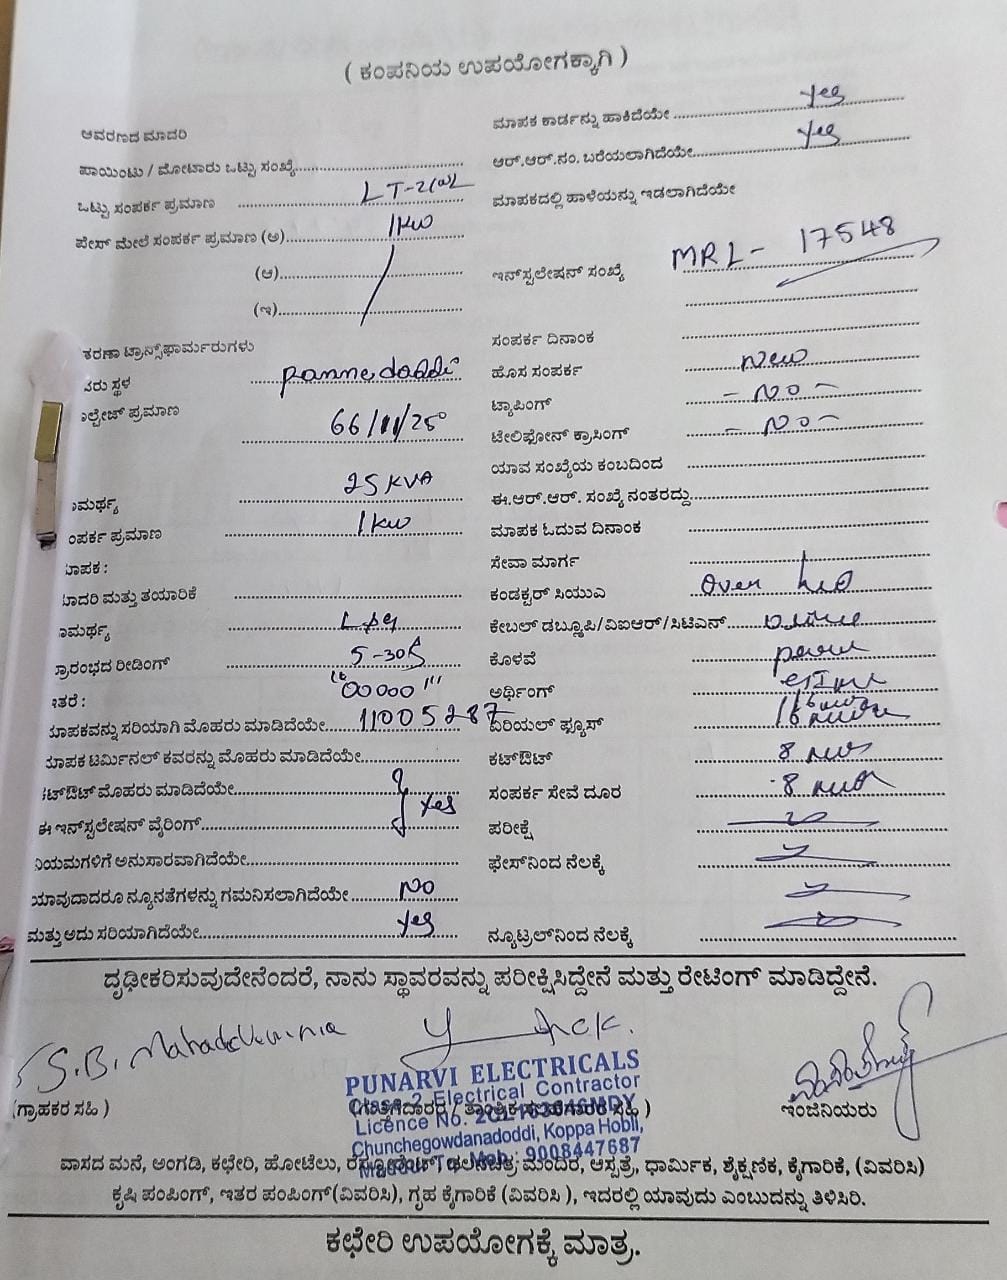 ( ಕಂಪನಿಯ ಉಪಯೋಗಕ್ಕಾಗಿ )
ಆವರಣದ ಮಾದರಿ
ಪಾಯಿಂಟು / ಮೋಟಾರು ಒಟ್ಟು ಸಂಖ್ಯೆ
ಒಟ್ಟು ಸಂಪರ್ಕ ಪ್ರಮಾಣ LT-2(a)
ಫೇಸ್ ಮೇಲೆ ಸಂಪರ್ಕ ಪ್ರಮಾಣ (ಅ) 1kw
(ಆ)
(ಇ)
ತರಣಾ ಟ್ರಾನ್ಸ್‌ಫಾರ್ಮರುಗಳು
ಸರು ಸ್ಥಳ pannedoddi
ಲ್ಟೇಜ್ ಪ್ರಮಾಣ 66/11/250
ಾಮರ್ಥ್ಯ 25 KVA
ಂಪರ್ಕ ಪ್ರಮಾಣ 1kw
ಾಪಕ :
ಾದರಿ ಮತ್ತು ತಯಾರಿಕೆ
ಾಮರ್ಥ್ಯ
ಪ್ರಾರಂಭದ ರೀಡಿಂಗ್ 5-30A
ಇತರೆ : "00000"
ಾಪಕವನ್ನು ಸರಿಯಾಗಿ ಮೊಹರು ಮಾಡಿದೆಯೇ 11005287
ಾಪಕ ಟರ್ಮಿನಲ್ ಕವರನ್ನು ಮೊಹರು ಮಾಡಿದೆಯೇ
ಕಟ್‌ಔಟ್ ಮೊಹರು ಮಾಡಿದೆಯೇ
ಈ ಇನ್‌ಸ್ಟಲೇಷನ್ ವೈರಿಂಗ್ Yes
ನಿಯಮಗಳಿಗೆ ಅನುಸಾರವಾಗಿದೆಯೇ
ಯಾವುದಾದರೂ ನ್ಯೂನತೆಗಳನ್ನು ಗಮನಿಸಲಾಗಿದೆಯೇ NO
ಮತ್ತು ಅದು ಸರಿಯಾಗಿದೆಯೇ Yes
ಮಾಪಕ ಕಾರ್ಡನ್ನು ಹಾಕಿದೆಯೇ Yes
ಆರ್.ಆರ್.ನಂ. ಬರೆಯಲಾಗಿದೆಯೇ Yes
ಮಾಪಕದಲ್ಲಿ ಹಾಳೆಯನ್ನು ಇಡಲಾಗಿದೆಯೇ
ಇನ್‌ಸ್ಟಲೇಷನ್ ಸಂಖ್ಯೆ MRL- 17548
ಸಂಪರ್ಕ ದಿನಾಂಕ
ಹೊಸ ಸಂಪರ್ಕ New
ಟ್ಯಾಪಿಂಗ್ - NO -
ಟೆಲಿಫೋನ್ ಕ್ರಾಸಿಂಗ್ - NO -
ಯಾವ ಸಂಖ್ಯೆಯ ಕಂಬದಿಂದ
ಈ.ಆರ್.ಆರ್. ಸಂಖ್ಯೆ ನಂತರದ್ದು
ಮಾಪಕ ಓದುವ ದಿನಾಂಕ
ಸೇವಾ ಮಾರ್ಗ
ಕಂಡಕ್ಟರ್ ಸಿಯುಎ Over
ಕೇಬಲ್ ಡಬ್ಲ್ಯೂಪಿ/ವಿಐಆರ್/ಸಿಟಿಎಸ್
ಕೊಳವೆ
ಅರ್ಥಿಂಗ್
ಏರಿಯಲ್ ಫ್ಯೂಸ್ 16
ಕಟ್‌ಔಟ್ 8
ಸಂಪರ್ಕ ಸೇವೆ ದೂರ 8
ಪರೀಕ್ಷೆ
ಫೇಸ್‌ನಿಂದ ನೆಲಕ್ಕೆ
ನ್ಯೂಟ್ರಲ್‌ನಿಂದ ನೆಲಕ್ಕೆ
ದೃಢೀಕರಿಸುವುದೇನೆಂದರೆ, ನಾನು ಸ್ಥಾವರವನ್ನು ಪರೀಕ್ಷಿಸಿದ್ದೇನೆ ಮತ್ತು ರೇಟಿಂಗ್ ಮಾಡಿದ್ದೇನೆ.
S.B.
PUNARVI ELECTRICALS
Class-2 Electrical Contractor
(ಗ್ರಾಹಕರ ಸಹಿ) (ಗುತ್ತಿಗೆದಾರರ / ತಾಂತ್ರಿಕ ಸಹಿ) ಇಂಜಿನಿಯರು
Licence No.
Chunchegowdanadoddi, Koppa Hobli,
Mob: 9008447687
ವಾಸದ ಮನೆ, ಅಂಗಡಿ, ಕಛೇರಿ, ಹೋಟೆಲು, ರೆಸ್ಟೋರೆಂಟ್ ಚಲನಚಿತ್ರ ಮಂದಿರ, ಆಸ್ಪತ್ರೆ, ಧಾರ್ಮಿಕ, ಶೈಕ್ಷಣಿಕ, ಕೈಗಾರಿಕೆ, (ವಿವರಿಸಿ)
ಕೃಷಿ ಪಂಪಿಂಗ್, ಇತರ ಪಂಪಿಂಗ್(ವಿವರಿಸಿ), ಗೃಹ ಕೈಗಾರಿಕೆ (ವಿವರಿಸಿ ), ಇದರಲ್ಲಿ ಯಾವುದು ಎಂಬುದನ್ನು ತಿಳಿಸಿರಿ.
ಕಛೇರಿ ಉಪಯೋಗಕ್ಕೆ ಮಾತ್ರ.